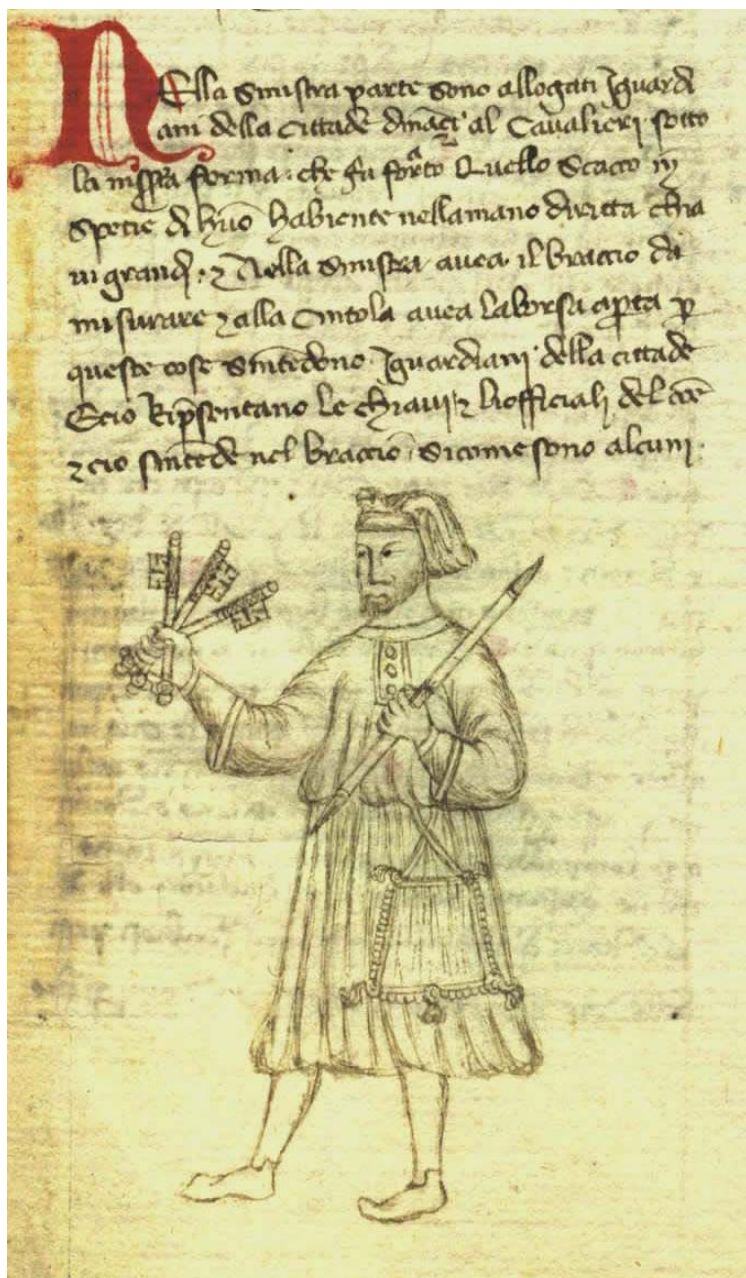 Nella sinistra parte sono allogati Iguardi
ani della cittade dināçi al Cavalieri sotto
la forma. che fu Quello Scacco in
spetie di huō habiente nellamano diritta chia
vi grandi. ⁊ Nella sinistra avea. il braccio da
misurare ⁊ alla Cintola avea laborsa apta p
queste cose sintēdono Iguardiani della cittade
Ecio Ripsentano le chiavi ⁊ liofficiali del
⁊ cio sintēde nel braccio. Sicome sono alcuni.